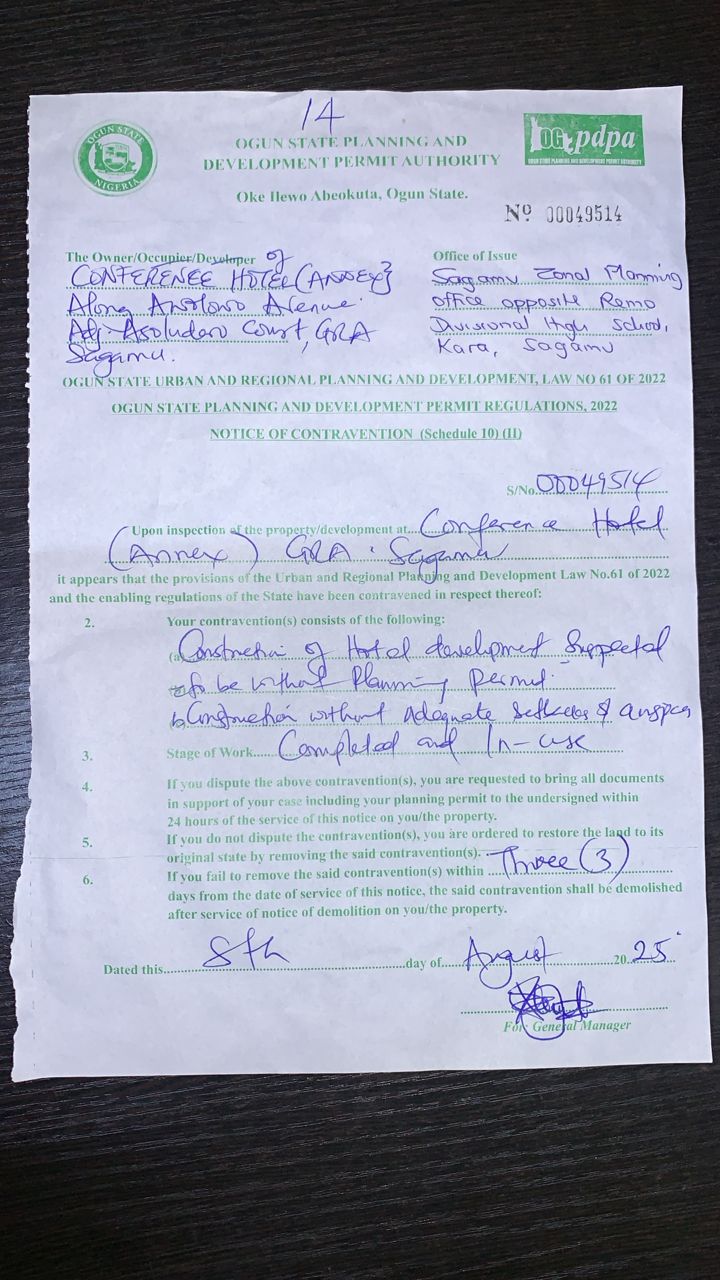 14
OGUN STATE
NIGERIA
OGUN STATE PLANNING AND
DEVELOPMENT PERMIT AUTHORITY
Oke Ilewo Abeokuta, Ogun State.
OG pdpa
OGUN STATE PLANNING AND DEVELOPMENT PERMIT AUTHORITY
No 00049514
The Owner/Occupier/Developer of
CONFERENCE HOTEL (ANNEX}
Along Awolowo Avenue.
Adj. Court, GRA
Sagamu.
Office of Issue
Sagamu Zonal Planning
office opposite Remo
Divisional High School,
Kara, Sagamu
OGUN STATE URBAN AND REGIONAL PLANNING AND DEVELOPMENT, LAW NO 61 OF 2022
OGUN STATE PLANNING AND DEVELOPMENT PERMIT REGULATIONS, 2022
NOTICE OF CONTRAVENTION (Schedule 10) (II)
S/No. 00049514
Upon inspection of the property/development at Conference Hotel
(Annex) GRA. Sagamu
it appears that the provisions of the Urban and Regional Planning and Development Law No.61 of 2022
and the enabling regulations of the State have been contravened in respect thereof:
2. Your contravention(s) consists of the following:
(a) Construction of Hotel development Suspected
to be without Planning Permit.
b) Construction without Adequate Setbacks &
3. Stage of Work Completed and In-use
4. If you dispute the above contravention(s), you are requested to bring all documents
in support of your case including your planning permit to the undersigned within
24 hours of the service of this notice on you/the property.
5. If you do not dispute the contravention(s), you are ordered to restore the land to its
original state by removing the said contravention(s).
6. If you fail to remove the said contravention(s) within Three (3)
days from the date of service of this notice, the said contravention shall be demolished
after service of notice of demolition on you/the property.
Dated this 8th day of August 20 25
For: General Manager